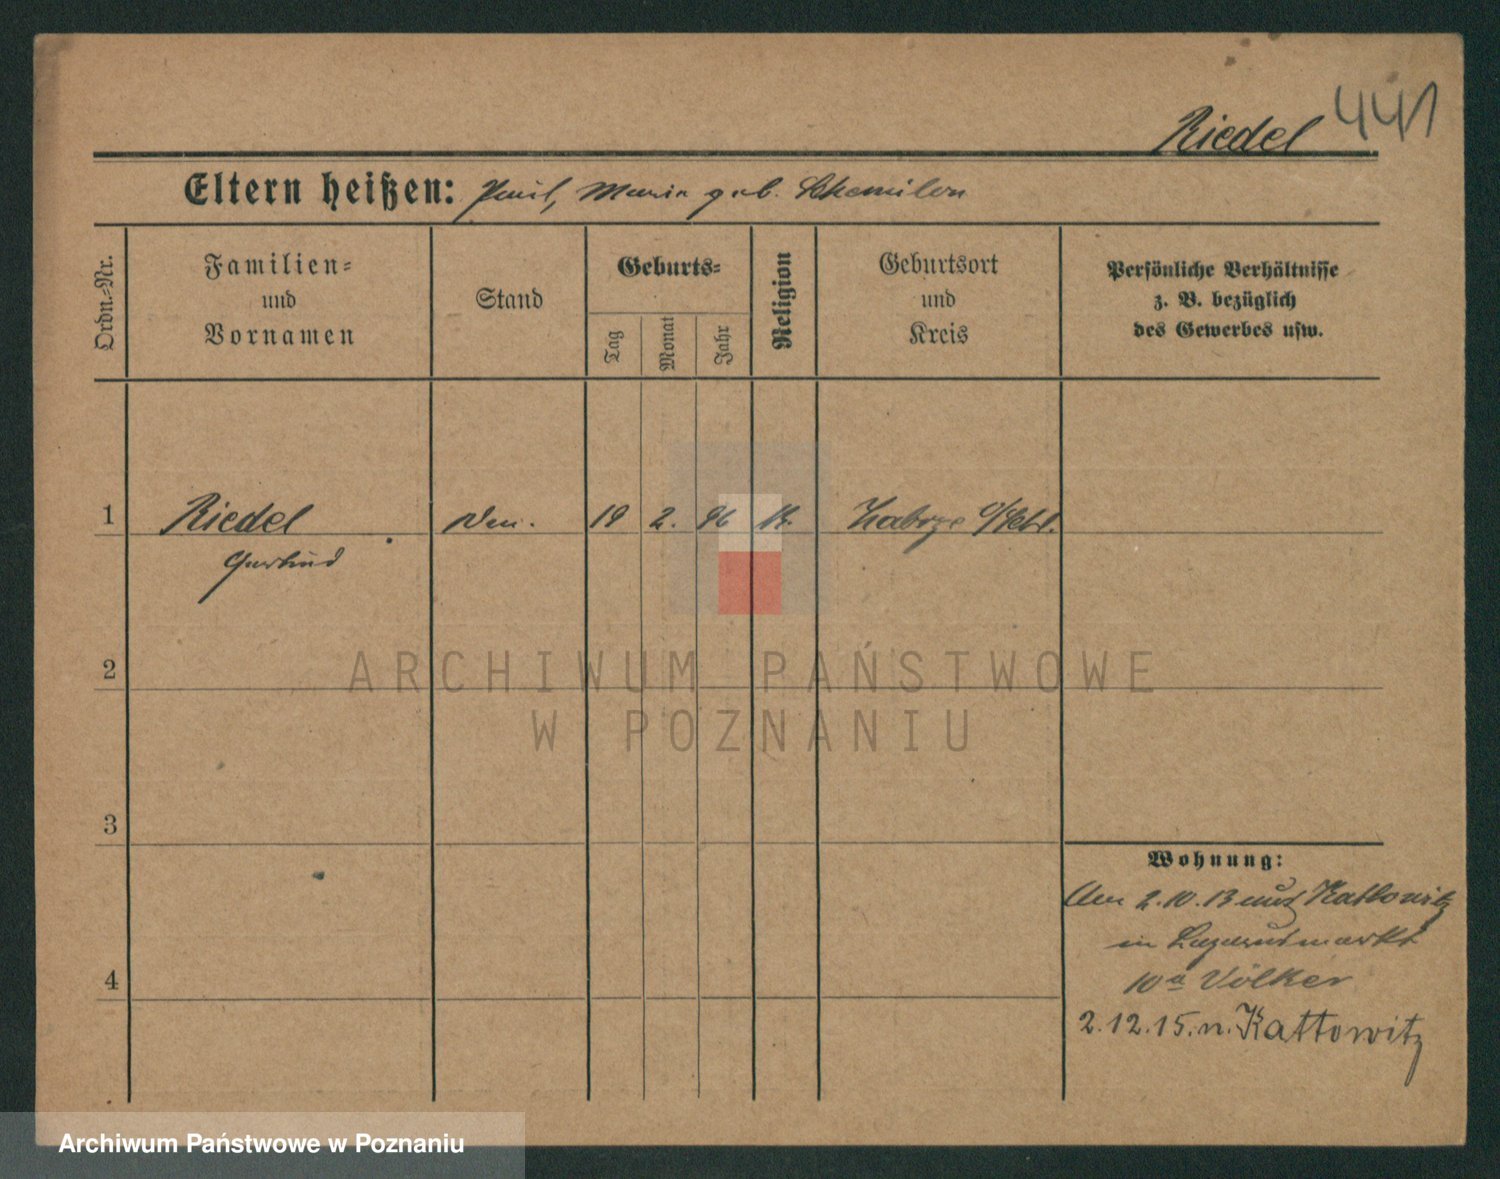 Riedel 441
Eltern heißen: Paul, Maria geb.
Ordn.-Nr.
Familien-
und
Vornamen
Stand
Geburts-
Tag
Monat
Jahr
Religion
Geburtsort
und
Kreis
Persönliche Verhältnisse
z. B. bezüglich
des Gewerbes usw.
1 Riedel 19 2. 96 K. Zabrze O/Schl.
Gertrud
2
ARCHIWUM PAŃSTWOWE
W POZNANIU
3
Wohnung:
2.10.13 aus Kattowitz
in Lazarusmarkt
4
10a Völker
2.12.15. n. Kattowitz
Archiwum Państwowe w Poznaniu